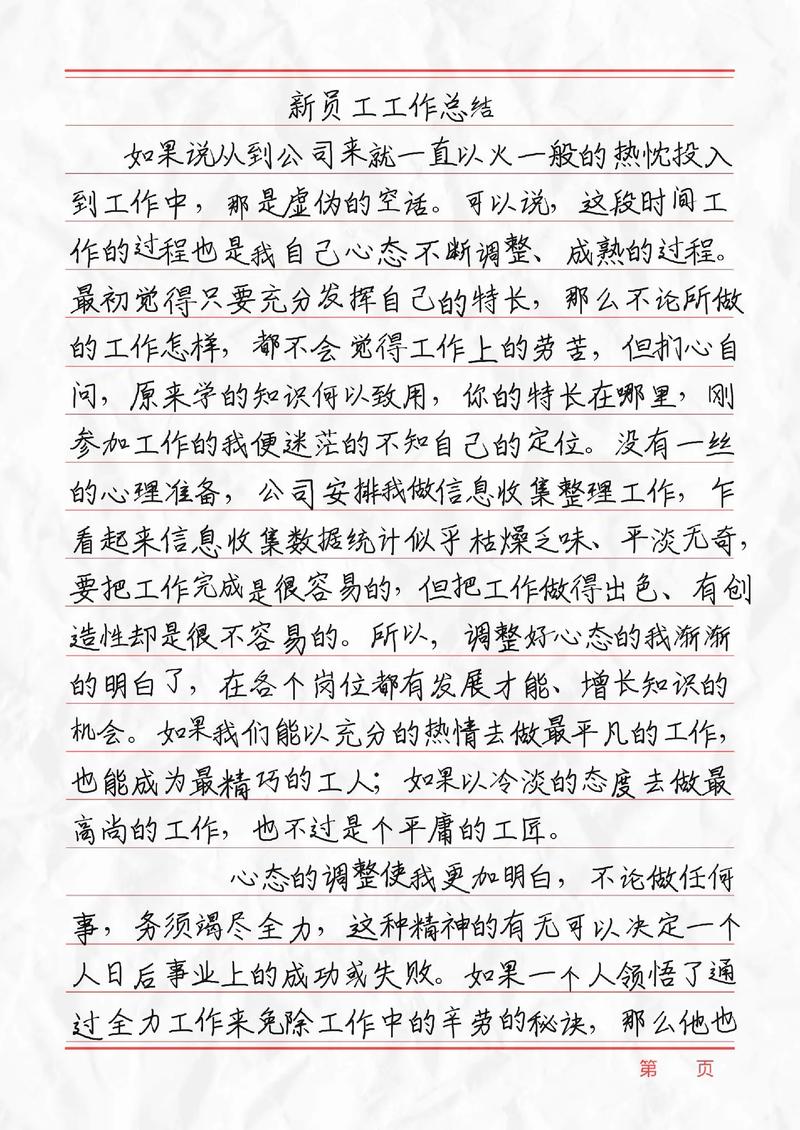 新员工工作总结
如果说从到公司来就一直以火一般的热忱投入
到工作中，那是虚伪的空话。可以说，这段时间工
作的过程也是我自己心态不断调整、成熟的过程。
最初觉得只要充分发挥自己的特长，那么不论所做
的工作怎样，都不会觉得工作上的劳苦，但扪心自
问，原来学的知识何以致用，你的特长在哪里，刚
参加工作的我便迷茫的不知自己的定位。没有一丝
的心理准备，公司安排我做信息收集整理工作，乍
看起来信息收集数据统计似乎枯燥乏味、平淡无奇，
要把工作完成是很容易的，但把工作做得出色、有创
造性却是很不容易的。所以，调整好心态的我渐渐
的明白了，在各个岗位都有发展才能、增长知识的
机会。如果我们能以充分的热情去做最平凡的工作，
也能成为最精巧的工人；如果以冷淡的态度去做最
高尚的工作，也不过是个平庸的工匠。
心态的调整使我更加明白，不论做任何
事，务须竭尽全力，这种精神的有无可以决定一个
人日后事业上的成功或失败。如果一个人领悟了通
过全力工作来免除工作中的辛劳的秘诀，那么他也
第 页